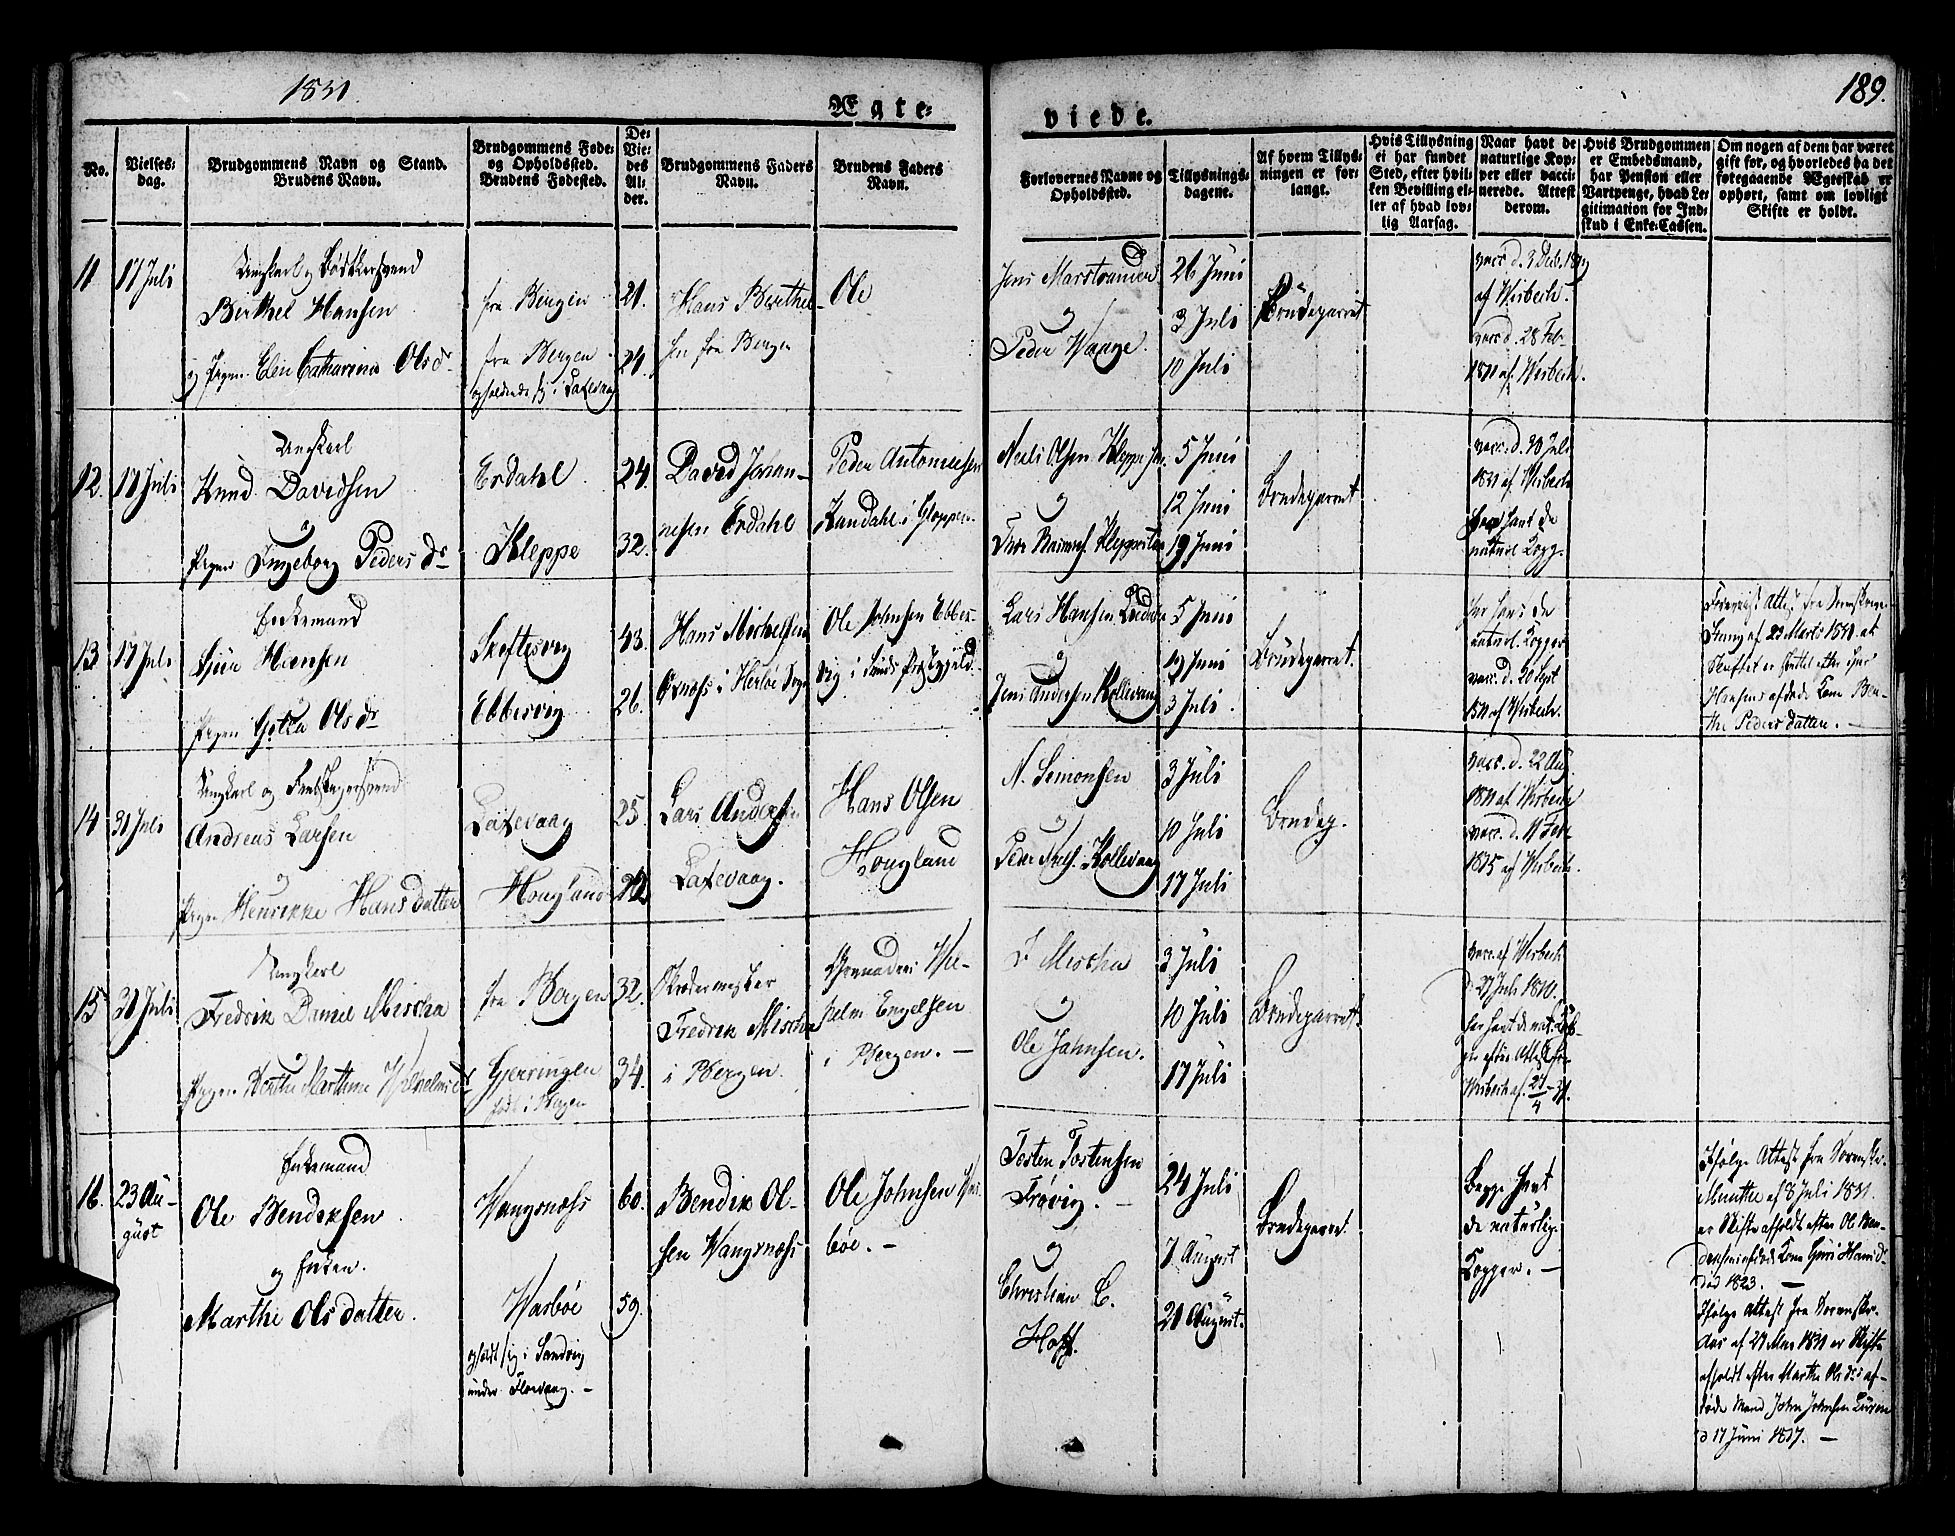 1831.
Ægte-
viede.
189.
No.
Vielses-
dag.
Brudgommens Navn og Stand.
Brudens Navn.
Brudgommens Føde-
og Opholdssted.
Brudens Fødested.
De-
Vie-
des
Al-
der.
Brudgommens Faders
Navn.
Brudens Faders
Navn.
Forlovernes Navne og
Opholdssted.
Tillysnings-
dagene.
Af hvem Tillys-
ningen er for-
langt.
Hvis Tillysning
ei har fundet
Sted, efter hvil-
ken Bevilling el-
ler af hvad lov-
lig Aarsag.
Naar havt de
naturlige Kop-
per eller vacci-
nerede. Attest
derom.
Hvis Brudgommen
er Embedsmand,
har Pension eller
Vartpenge, hvad Le-
gitimation for Ind-
skud i Enke-Cassen.
Om nogen af dem har været
gift før, og hvorledes da det
foregaaende Ægteskab er
ophørt, samt om lovligt
Skifte er holdt.
11
17 Juli
Ungkarl og Bødkersvend
Hansen
og Pigen Elen Catharina Olsdr
fra Bergen
fra Bergen
opholdende sig i Laxevaag
21.
24.
Hans Berthel-
sen fra Bergen
Ole
Jens Marstrander
og
Peder Waage.
26 Juni
3 Juli
10 Juli
Brudeparret
af Wisbech.
vacc. d. 28 Feb.
af Wisbech.
12.
17 Juli
Ungkarl
Knud Davidsen
og
Pigen Ingeborg Peders dr
Erdahl
Kleppe
24.
32.
David Johan-
nesen Erdahl
Peder Antoniesen
Kandahl i Gloppen.
Neils Olsen Kleppe
og
5 Juni
12 Juni
19 Juni
Brudeparret
af Wisbech
Hun havt de
naturl. Kopp.
13.
17 Juli
Enkemand
Hansen
Pigen Olsdr
Skoftesvig
Ebbesvig
43.
26.
Hans Michelsen
i Herløe Sogn
Ole Johnsen Ebbes-
vig i Sunds Præstegjeld.
Lars Hansen
og
Jens Andersen Kollevaag
5 Juni
19 Juni
3 Juli.
Brudeparret.
har havt de
naturl. Kopper
af Wisbech.
er skiftet efter
Hansens afdøde Kone Ben-
the Peders datter. —
14
31 Juli
Ungkarl og
Andreas Larsen
og
Pigen Henrikke Hans datter
Laxevaag
Hougland
25.
22
Lars Andersen
Laxevaag.
Hans Olsen
Hougland
N. Simonsen
og
Peder Kollevaag
3 Juli
10 Juli
17 Juli
Brudep.
vacc. d. 22 Aug
af Wisbech
vacc. d. 11 Febr
af Wisbech.
15
31 Juli
Ungkarl
Fredrik Daniel Mischa
og
Pigen Marthine Wilhelmsdr
fra Bergen
Gjerringen
født i Bergen
32.
34.
Fredrik Mischa
i Bergen.
Grenadeer Wil-
helm Engelsen
i Bergen. —
F Mischa
og
Ole Jahnsen.
3 Juli
10 Juli
17 Juli
Brudeparret.
vacc. af Wisbech
d. 27 Juli 1810.
Wisbech af 27/4 – 31.
16.
23 Au-
gust
Enkemand
Ole Bendiksen
og Enken.
Marthe Olsdatter.
Wangsnæss
Wasbøe
opholdt sig i Sandvig
under Florvaag. —
60.
59.
Bendix Ol-
sen Wangsnæss
Ole Johnsen Was-
bøe. —
Tosten Tostensen
Frøvig. —
og
Christian C.
Hoff.
24 Juli
7 August
21 August.
Brudeparret.
Begge havt
de naturlig.
Kopper. —
Ifølge Attest fra Sorenskr.
Munthe af 8 Juli 1831.
er Skifte afholdt efter Ole Ben-
diksens afdøde Kone Guri Hansd.
død 1823. —
Ifølge Attest fra Sorenskr.
Aas af 21 Mai 1831 er Skifte
afholdt efter Marthe Olsdrs af-
døde Mand John Johnsen
d 17 Juni 1817. —